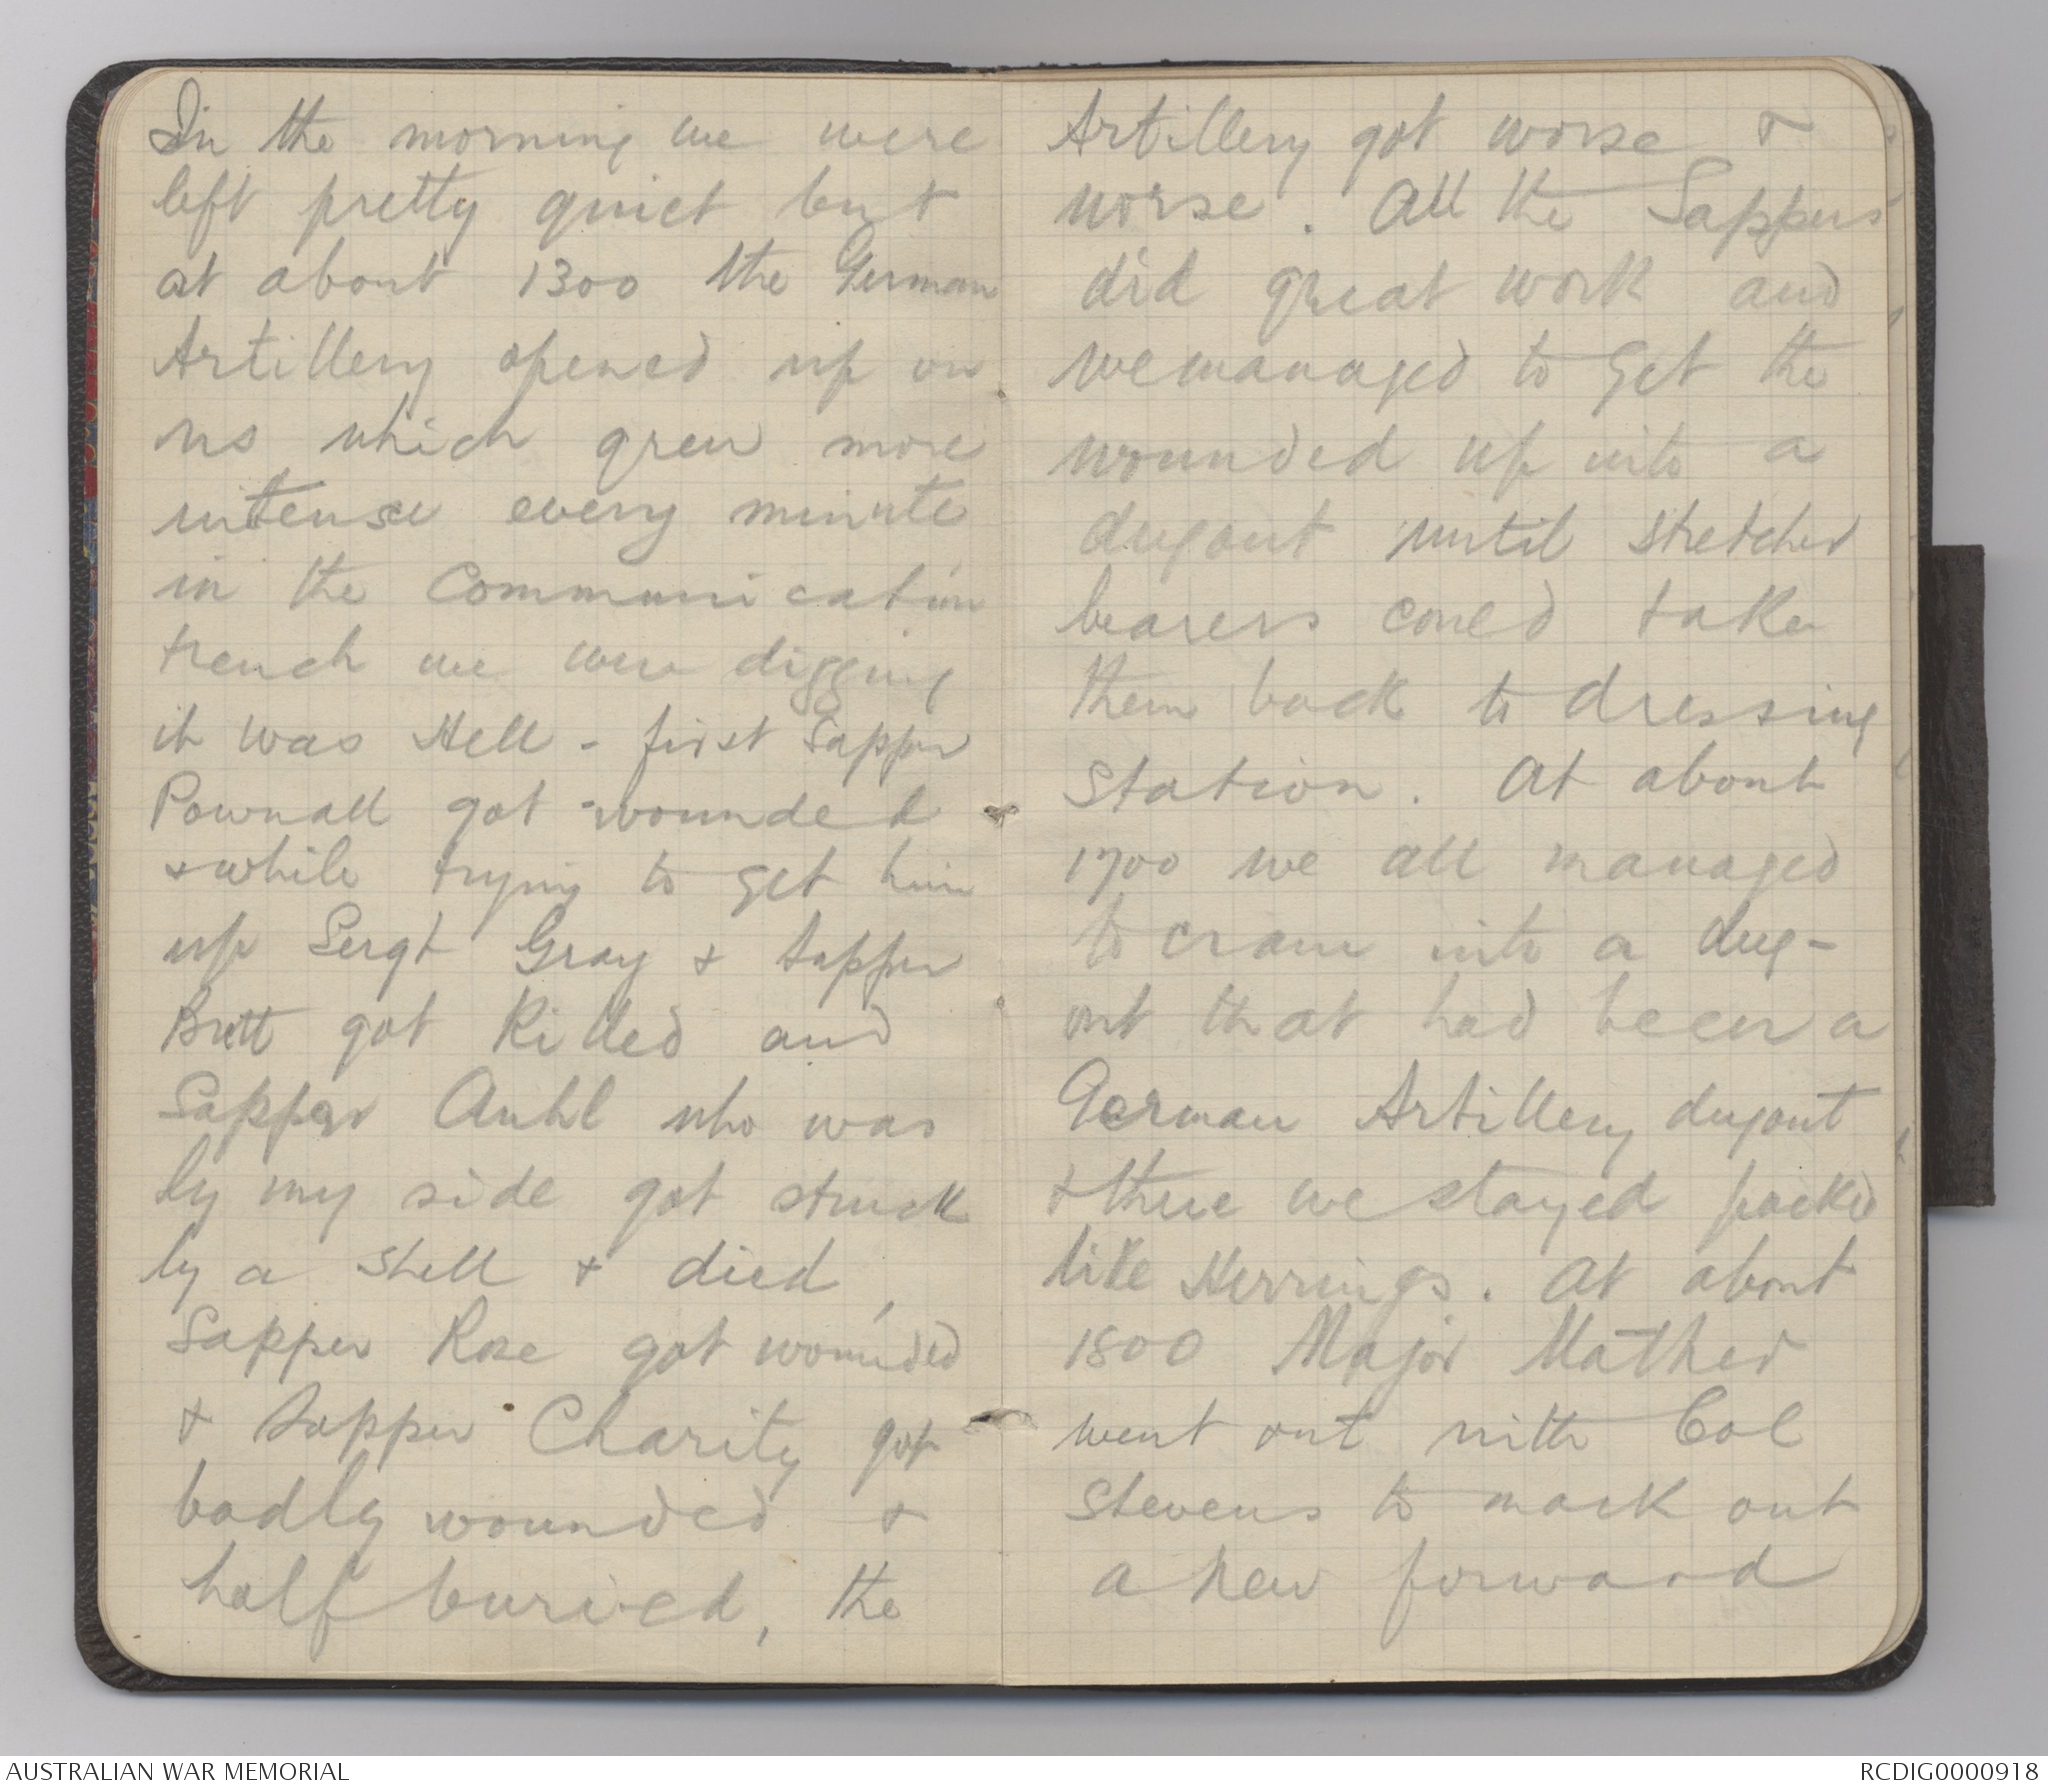 In the morning we were
left pretty quiet but
at about 1300 the German
Artillery opened up on
us which grew more
intense every minute
in the Communication
trench we were digging
it was Hell - first Sapper
Pownall got wounded
& while trying to get him
up Sergt Gray & Sapper
Brett got Killed and
Sapper Auhl who was
by my side got struck
by a shell & died,
Sapper Rose got wounded
& Sapper Charity got
badly wounded &
half buried, the
Artillery got worse &
worse. All the Sappers
did great work and
we managed to get the
wounded up into a
dugout until stretcher
bearers could take
them back to dressing
Station. At about
1700 we all managed
to cram into a dug-
out that had been a
German Artillery dugout
& there we stayed packed
like Herrings. At about
1800 Major Mather
went out with Col
Stevens to mark out
a new forward
AUSTRALIAN WAR MEMORIAL
RCDIG0000918